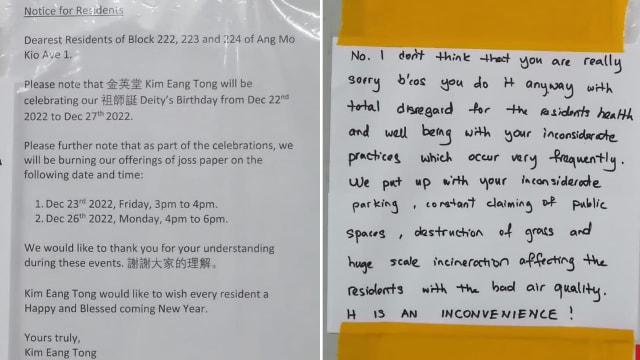 Notice for Residents
Dearest Residents of Block 222, 223 and 224 of Ang Mo
Kio Ave 1.
Please note that 金英堂 Kim Eang Tong will be
celebrating our 祖師誕 Deity's Birthday from Dec 22nd
2022 to Dec 27th 2022.
Please further note that as part of the celebrations, we
will be burning our offerings of joss paper on the
following date and time:
1. Dec 23rd 2022, Friday, 3pm to 4pm.
2. Dec 26th 2022, Monday, 4pm to 6pm.
We would like to thank you for your understanding
during these events. 謝謝大家的理解。
Kim Eang Tong would like to wish every resident a
Happy and Blessed coming New Year.
Yours truly,
Kim Eang Tong
No. I don't think that you are really
sorry b'cos you do it anyway with
total disregard for the residents health
and well being with your inconsiderate
practices which occur very frequently.
We put up with your inconsiderate
parking, constant claiming of public
spaces, destruction of grass and
huge scale incineration affecting the
residents with the bad air quality.
It IS AN INCONVENIENCE!